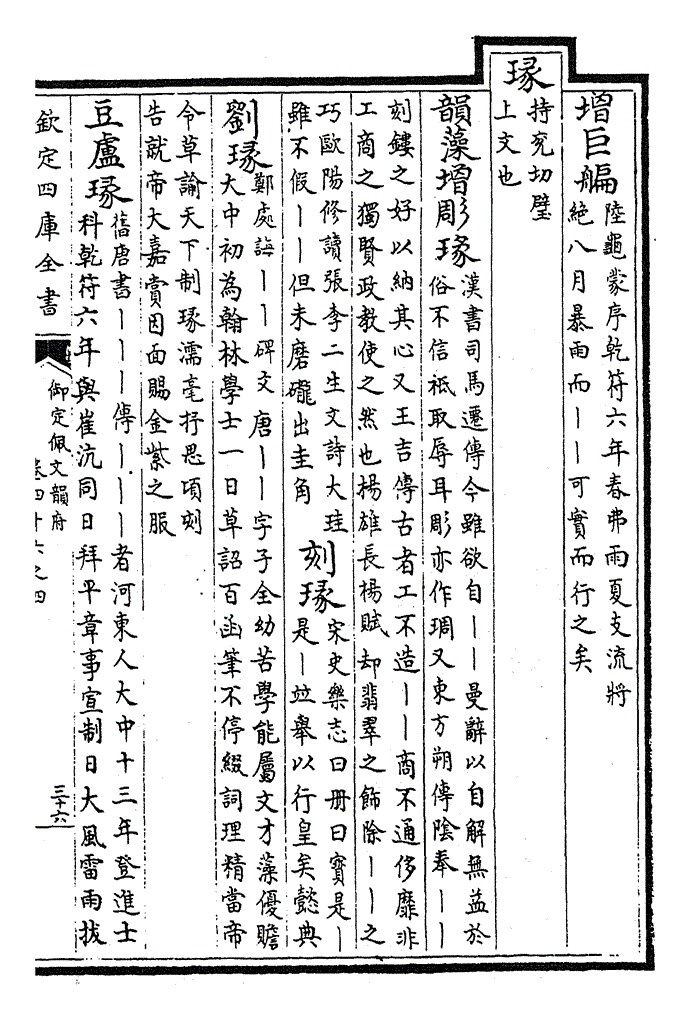 增巨艑陸龜蒙序乾符六年春弗雨夏支流將
絶八月暴雨而丨丨可實而行之矣
瑑
持兖切璧
上文也
韻藻增彫瑑漢書司馬遷傳今雖欲自丨丨曼辭以自解無益於
俗不信祗取辱耳彫亦作琱又東方朔傳陰奉丨丨
刻鏤之好以納其心又王吉傳古者工不造丨丨商不通侈靡非
工商之獨賢政教使之然也楊雄長楊賦却翡翠之飾除丨丨之
巧歐陽修讀張李二生文詩大珪
雖不假丨丨但未磨礲出圭角
刻瑑宋史樂志曰冊曰寳是丨
是丨竝舉以行皇矣懿典
劉瑑鄭處誨丨丨碑文唐丨丨字子全幼苦學能屬文才藻優贍
大中初為翰林學士一日草詔百函筆不停綴詞理精當帝
令草諭天下制瑑濡毫抒思頃刻
告就帝大嘉賞因面賜金紫之服
豆盧瑑舊唐書丨丨丨傳丨丨丨者河東人大中十三年登進士
科乾符六年與崔沆同日拜平章事宣制日大風雷雨拔
欽定四庫全書
御定佩文韻府
卷四十六之四
三十六